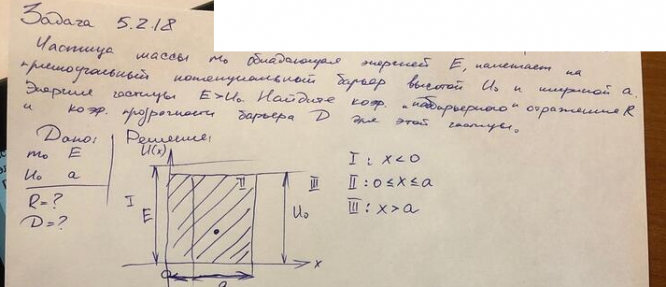 Задача 5.2.18
Частица массы m₀ обладающая энергией E, налетает на
прямоугольный потенциальный барьер высотой U₀ и шириной a.
Энергия частицы E>U₀. Найдите коэф. "надбарьерного" отражения R
и коэф. прозрачности барьера D для этой частицы.
Дано:
m₀ E
U₀ a
R=?
D=?
Решение:
U(x)
I
E
II
III
U₀
0
a
x
I : x<0
II : 0≤x≤a
III : x>a